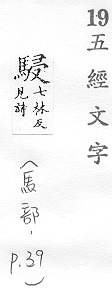 19
五經文字
駸七林反
見詩
(馬部,
p.39)